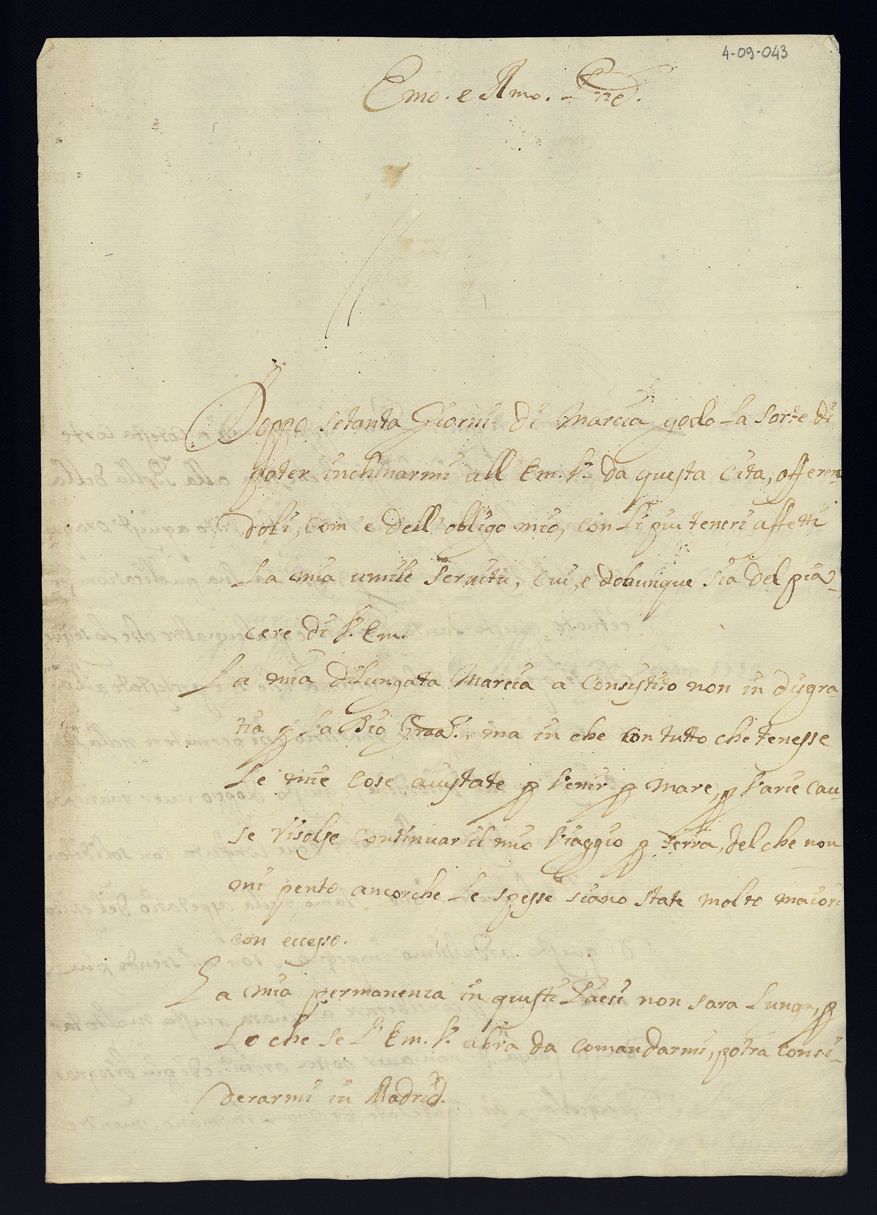 4-09-043
Emo. e Rmo. Pne.
Doppo setanta Giorni di Marcia godo La Sorte di
poter inchinarmi all Em. V. da questa Cita, offeren
doli, com' e dell' obligo mio, con Li piu teneri affetti
La mia umile Servitu, cui, e dobunque sia del pia-
cere di V. Em.
La mia dilungata Marcia a Consistito non in disgra
tia p La Dio Graa., ma in che con tutto che tenesse
Le mie Cose avistate p Venir p Mare, p Varie Cau-
se risolse Continuar il mio Viaggio p Terra, del che non
mi pento ancorche Le spesse siano state molto maiori
con eccesso.
La mia permanenza in questi Paesi non sara Lunga, p
Lo che se V. Em. V. abra da Comandarmi, potra Consi-
derarmi in Madrid.